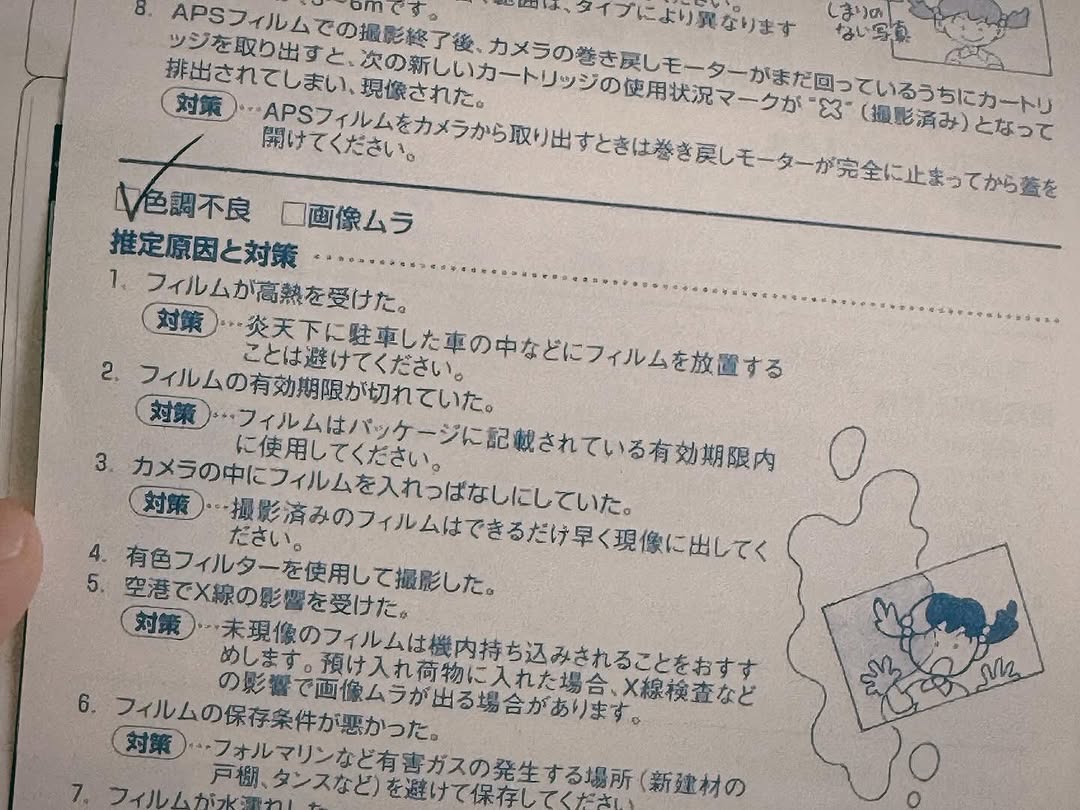 〜6mです。
範囲は、タイプにより異なります
しまりの
ない写真
8. APSフィルムでの撮影終了後、カメラの巻き戻しモーターがまだ回っているうちにカートリ
ッジを取り出すと、次の新しいカートリッジの使用状況マークが" "(撮影済み)となって
排出されてしまい、現像された。
対策…APSフィルムをカメラから取り出すときは巻き戻しモーターが完全に止まってから蓋を
開けてください。
☑色調不良 □画像ムラ
推定原因と対策
1. フィルムが高熱を受けた。
対策…炎天下に駐車した車の中などにフィルムを放置する
ことは避けてください。
2. フィルムの有効期限が切れていた。
対策…フィルムはパッケージに記載されている有効期限内
に使用してください。
3. カメラの中にフィルムを入れっぱなしにしていた。
対策…撮影済みのフィルムはできるだけ早く現像に出してく
ださい。
4. 有色フィルターを使用して撮影した。
5. 空港でX線の影響を受けた。
対策…未現像のフィルムは機内持ち込みされることをおすす
めします。預け入れ荷物に入れた場合、X線検査など
の影響で画像ムラが出る場合があります。
6. フィルムの保存条件が悪かった。
対策…フォルマリンなど有害ガスの発生する場所(新建材の
戸棚、タンスなど)を避けて保存してください。
7. フィルムが水濡れした